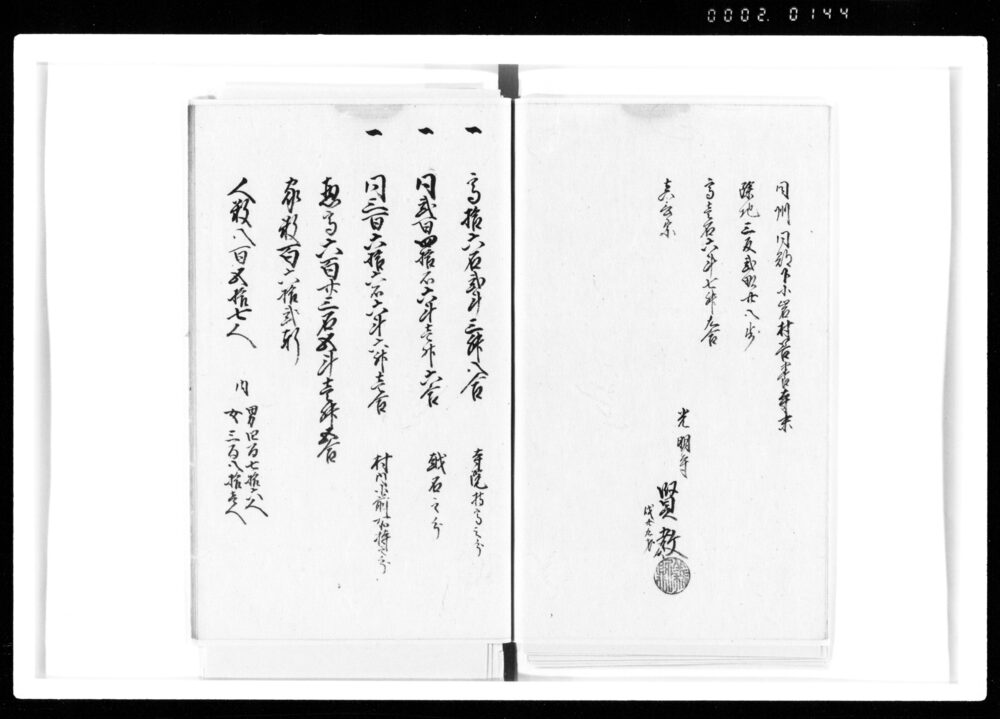 0002. 0144
同州同郡下小岩村善養寺末
除地三反弐畝廿八歩
高壱石六斗七升九合
真言宗
光明寺
賢教
戌廿九才
一 高拾六石弐斗三升八合 寺院持高之分
一 同弐百四拾石六斗壱升六合 越石之分
一 同三百六拾六石六斗六升壱合 村内小前所持之分
惣高六百廿三石五斗壱升五合
家数百六拾弐軒
人数八百五拾七人 内
男四百七拾六人
女三百八拾壱人